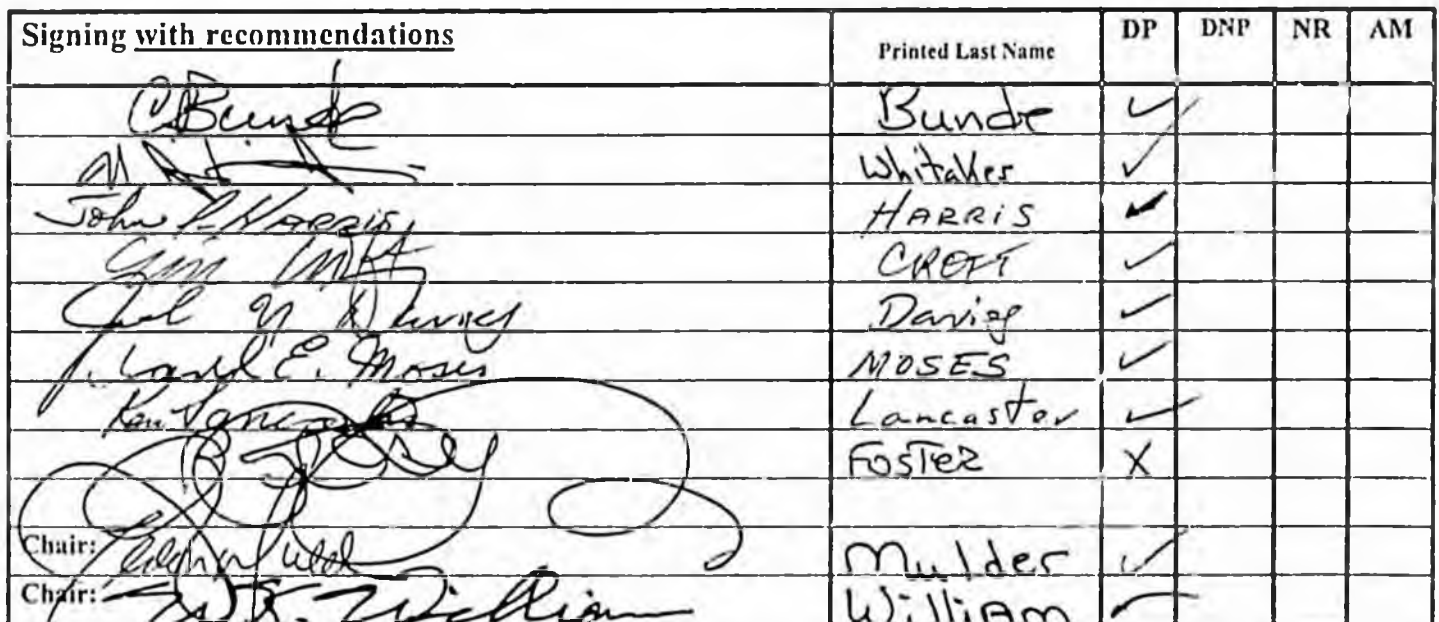 Signing with recommendations Printed Last Name DP DNP NR AM
C. Bunde Bunde ✓
M Whitaker ✓
John L. Harris HARRIS ✓
CROFT ✓
Davies Davies ✓
J. E. Moses MOSES ✓
Ken Lancaster Lancaster ✓
FOSTER X
Chair: Mulder ✓
Chair: W.K. William William ✓